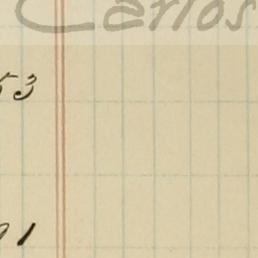 Carlos
53
91